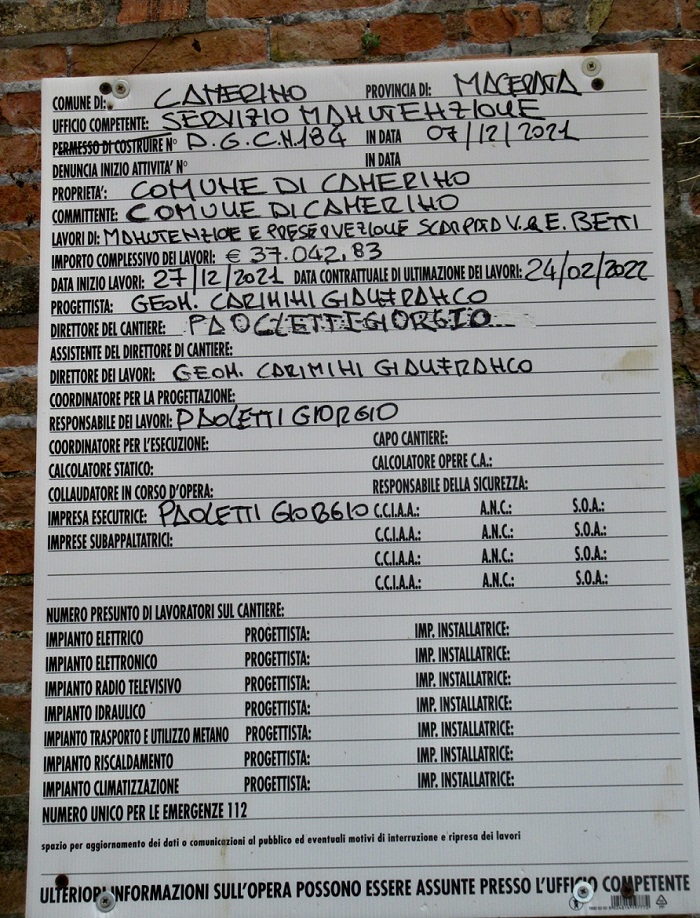 COMUNE DI: CAMERINO PROVINCIA DI: MACERATA
UFFICIO COMPETENTE: SERVIZIO MANUTENZIONE
PERMESSO DI COSTRUIRE N° D.G.C.N.184 IN DATA 07/12/2021
DENUNCIA INIZIO ATTIVITA' N° IN DATA
PROPRIETA': COMUNE DI CAMERINO
COMMITTENTE: COMUNE DI CAMERINO
LAVORI DI: MANUTENZIONE E PRESERVEZIONE SCARPATA V.LE E. BETTI
IMPORTO COMPLESSIVO DEI LAVORI: € 37.042,83
DATA INIZIO LAVORI: 27/12/2021 DATA CONTRATTUALE DI ULTIMAZIONE DEI LAVORI: 24/02/2022
PROGETTISTA: GEOM. CARIMINI GIANFRANCO
DIRETTORE DEL CANTIERE: PAOLETTI GIORGIO
ASSISTENTE DEL DIRETTORE DI CANTIERE:
DIRETTORE DEI LAVORI: GEOM. CARIMINI GIANFRANCO
COORDINATORE PER LA PROGETTAZIONE:
RESPONSABILE DEI LAVORI: PAOLETTI GIORGIO
COORDINATORE PER L'ESECUZIONE: CAPO CANTIERE:
CALCOLATORE STATICO: CALCOLATORE OPERE C.A.:
COLLAUDATORE IN CORSO D'OPERA: RESPONSABILE DELLA SICUREZZA:
IMPRESA ESECUTRICE: PAOLETTI GIORGIO C.C.I.A.A.: A.N.C.: S.O.A.:
IMPRESE SUBAPPALTATRICI: C.C.I.A.A.: A.N.C.: S.O.A.:
C.C.I.A.A.: A.N.C.: S.O.A.:
C.C.I.A.A.: A.N.C.: S.O.A.:
NUMERO PRESUNTO DI LAVORATORI SUL CANTIERE:
IMPIANTO ELETTRICO PROGETTISTA: IMP. INSTALLATRICE:
IMPIANTO ELETTRONICO PROGETTISTA: IMP. INSTALLATRICE:
IMPIANTO RADIO TELEVISIVO PROGETTISTA: IMP. INSTALLATRICE:
IMPIANTO IDRAULICO PROGETTISTA: IMP. INSTALLATRICE:
IMPIANTO TRASPORTO E UTILIZZO METANO PROGETTISTA: IMP. INSTALLATRICE:
IMPIANTO RISCALDAMENTO PROGETTISTA: IMP. INSTALLATRICE:
IMPIANTO CLIMATIZZAZIONE PROGETTISTA: IMP. INSTALLATRICE:
NUMERO UNICO PER LE EMERGENZE 112
spazio per aggiornamento dei dati o comunicazioni al pubblico ed eventuali motivi di interruzione e ripresa dei lavori
ULTERIORI INFORMAZIONI SULL'OPERA POSSONO ESSERE ASSUNTE PRESSO L'UFFICIO COMPETENTE